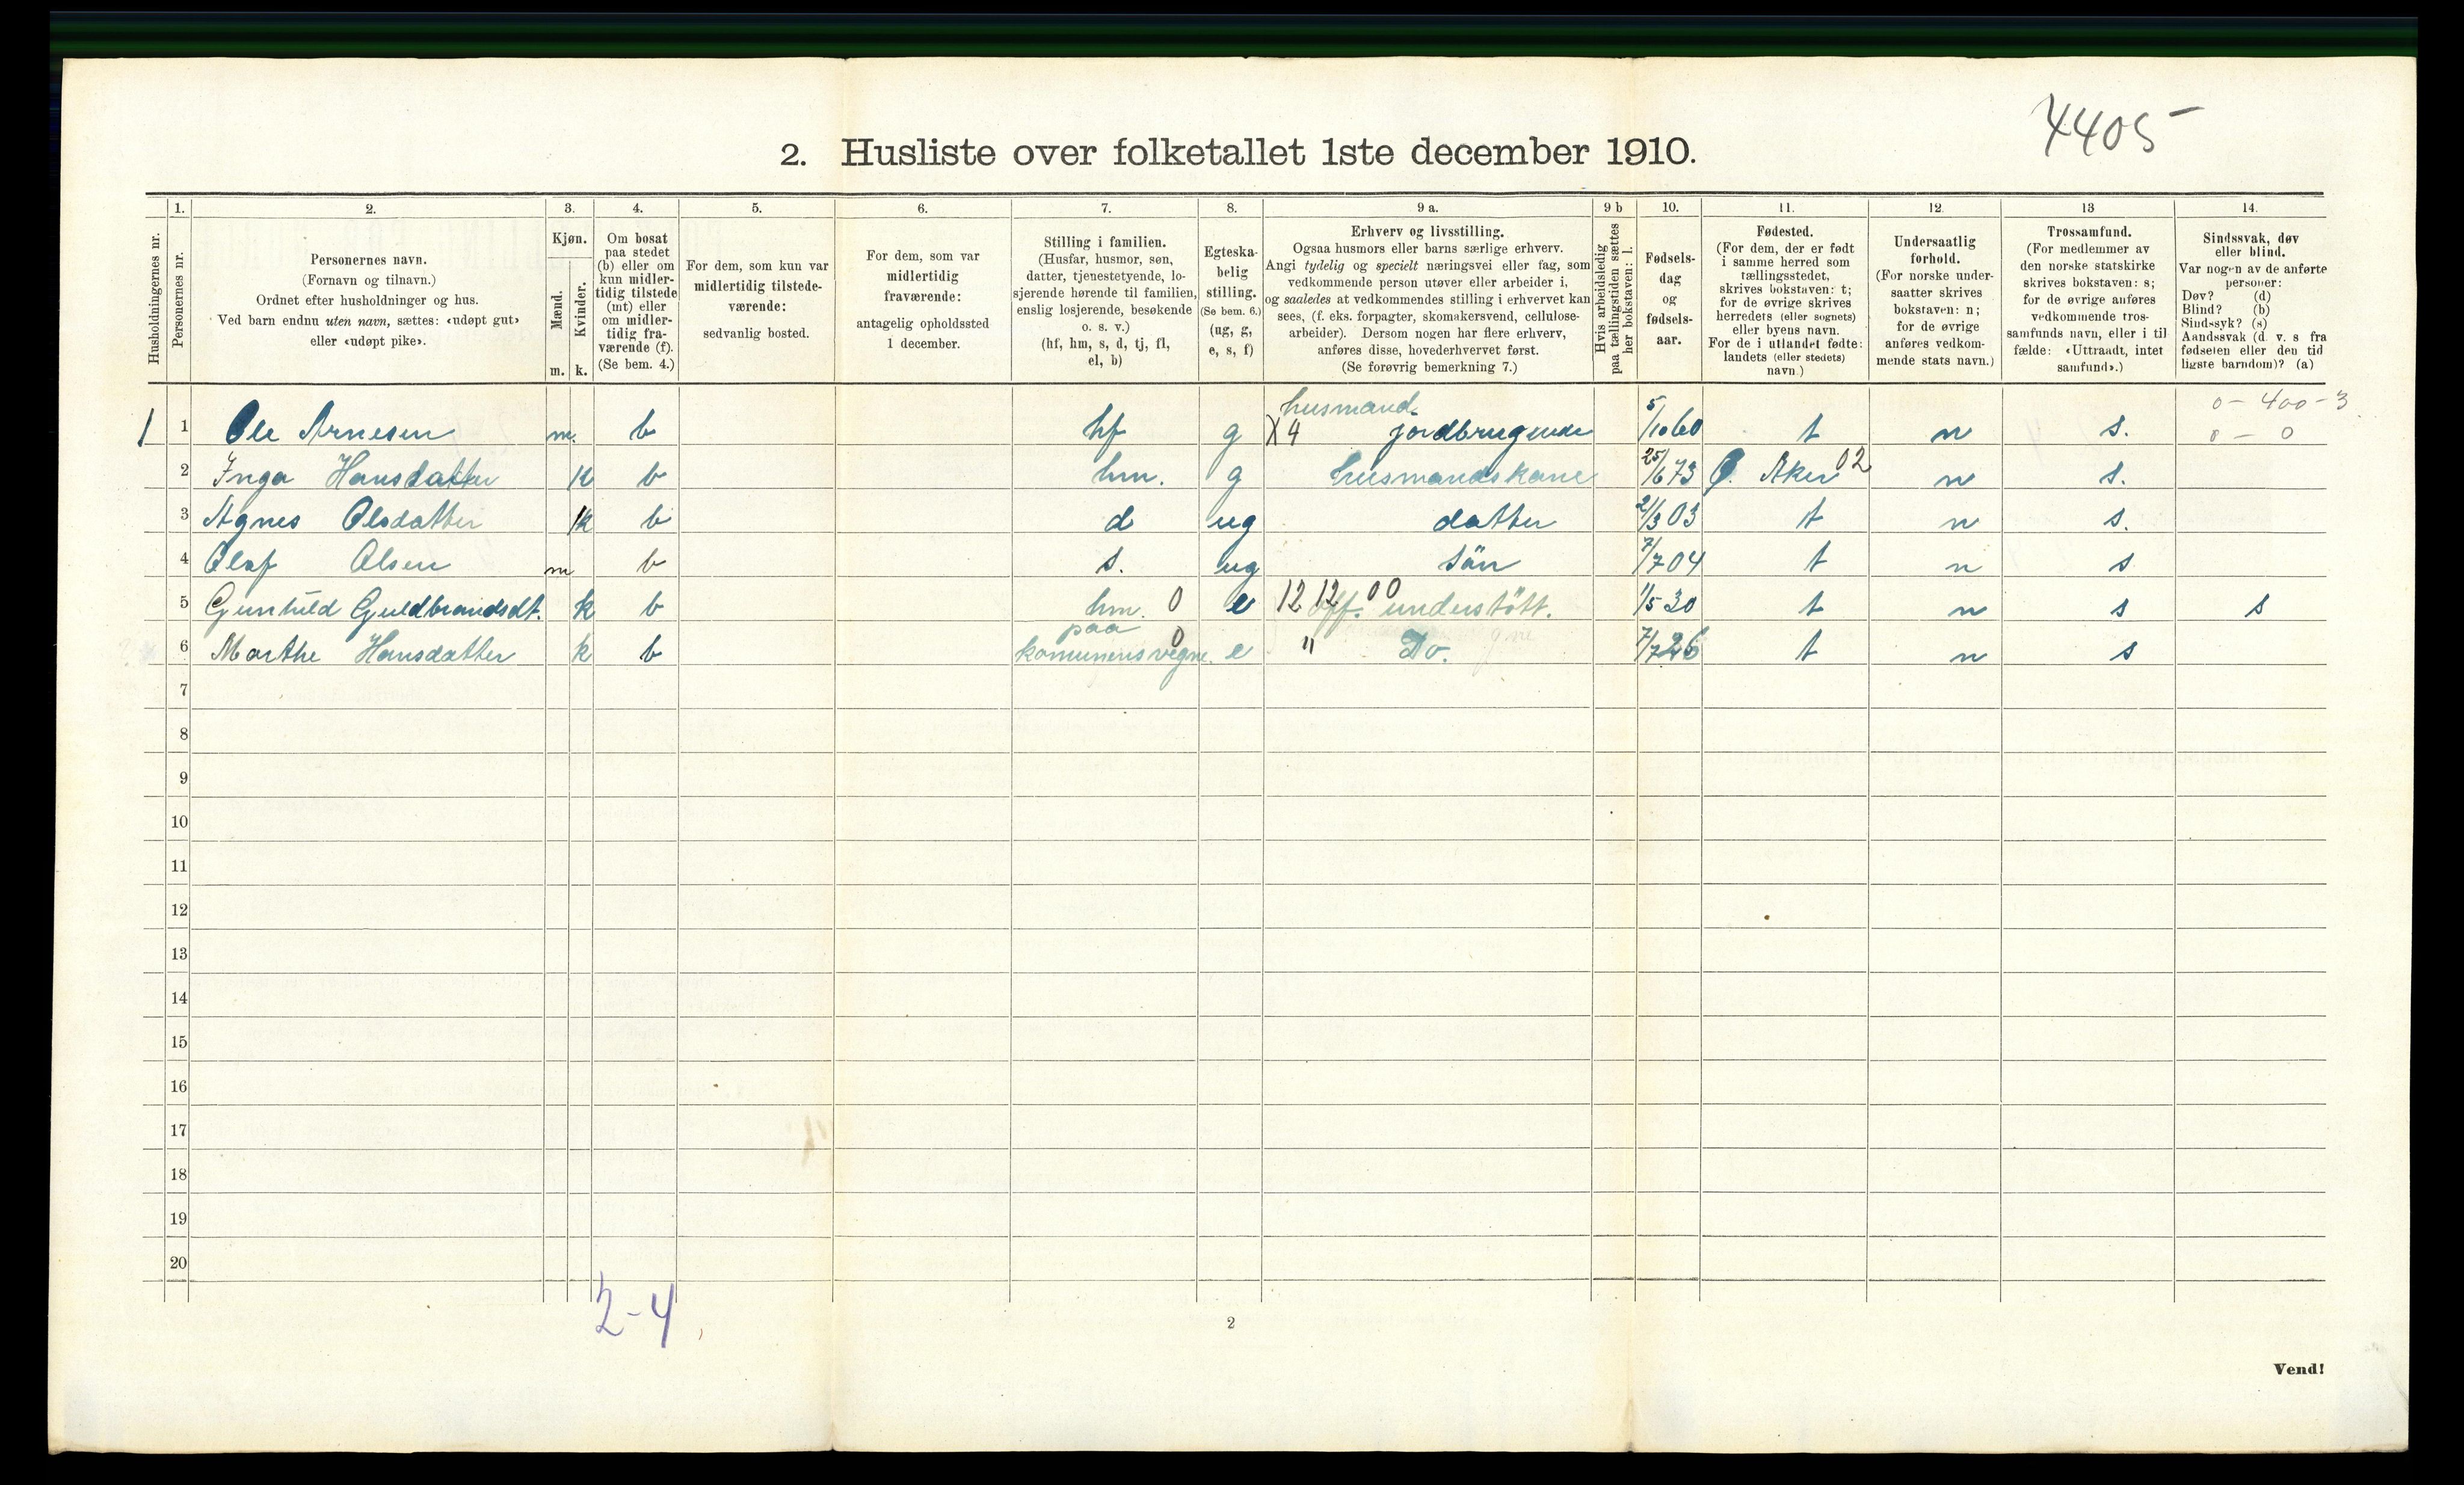 4405
2. Husliste over folketallet 1ste december 1910.
Husholdningernes nr.
1.
Personernes nr.
2.
Personernes navn.
(Fornavn og tilnavn.)
Ordnet efter husholdninger og hus.
Ved barn endnu uten navn, sættes: «udøpt gut»
eller «udøpt pike».
3.
Kjøn.
Mænd.
Kvinder.
m. k.
4.
Om bosat
paa stedet
(b) eller om
kun midler-
tidig tilstede
(mt) eller
om midler-
tidig fra-
værende (f).
(Se bem. 4.)
5.
For dem, som kun var
midlertidig tilstede-
værende:
sedvanlig bosted.
6.
For dem, som var
midlertidig
fraværende:
antagelig opholdssted
1 december.
7.
Stilling i familien.
(Husfar, husmor, søn,
datter, tjenestetyende, lo-
sjerende hørende til familien,
enslig losjerende, besøkende
o. s. v.)
(hf, hm, s, d, tj, fl,
el, b)
8.
Egteska-
belig
stilling.
(Se bem. 6.)
(ug, g,
e, s, f)
9 a.
Erhverv og livsstilling.
Ogsaa husmors eller barns særlige erhverv.
Angi tydelig og specielt næringsvei eller fag, som
vedkommende person utøver eller arbeider i,
og saaledes at vedkommendes stilling i erhvervet kan
sees, (f. eks. forpagter, skomakersvend, cellulose-
arbeider). Dersom nogen har flere erhverv,
anføres disse, hovederhvervet først.
(Se forøvrig bemerkning 7.)
9 b
Hvis arbeidsledig
paa tællingstiden sættes
her bokstaven: l.
10.
Fødsels-
dag
og
fødsels-
aar.
11.
Fødested.
(For dem, der er født
i samme herred som
tællingsstedet,
skrives bokstaven: t;
for de øvrige skrives
herredets (eller sognets)
eller byens navn.
For de i utlandet fødte:
landets (eller stedets)
navn.)
12.
Undersaatlig
forhold.
(For norske under-
saatter skrives
bokstaven: n;
for de øvrige
anføres vedkom-
mende stats navn.)
13
Trossamfund.
(For medlemmer av
den norske statskirke
skrives bokstaven: s;
for de øvrige anføres
vedkommende tros-
samfunds navn, eller i til
fælde: «Uttraadt, intet
samfund».)
14.
Sindssvak, døv
eller blind.
Var nogen av de anførte
personer:
Døv? (d)
Blind? (b)
Sindssyk? (s)
Aandssvak (d. v. s fra
fødselen eller den tid
ligste barndom)? (a)
husmand. 0 - 400 - 3
1 1 Ole Arnesen m. b hf g X4 jordbrugende 5/10 60 t n s. 0 - 0
2 Inga Hansdatter k b hm. g husmandskone 25/6 73 Ø. Aker 02 n s.
3 Agnes Olsdatter k b d ug datter 21/3 03 t n s.
4 Olaf Olsen m b s. ug sön 7/7 04 t n s
5 Gunhild Guldbrandsdt. k b hm. 0 e 12 12 00 off. understött. 1/5 30 t n s s
paa
6 Marthe Hansdatter k b komunens vegne. 0 e " Do. 7/7 26 t n s
7
8
9
10
11
12
13
14
15
16
17
18
19
20
2-4
2
Vend!